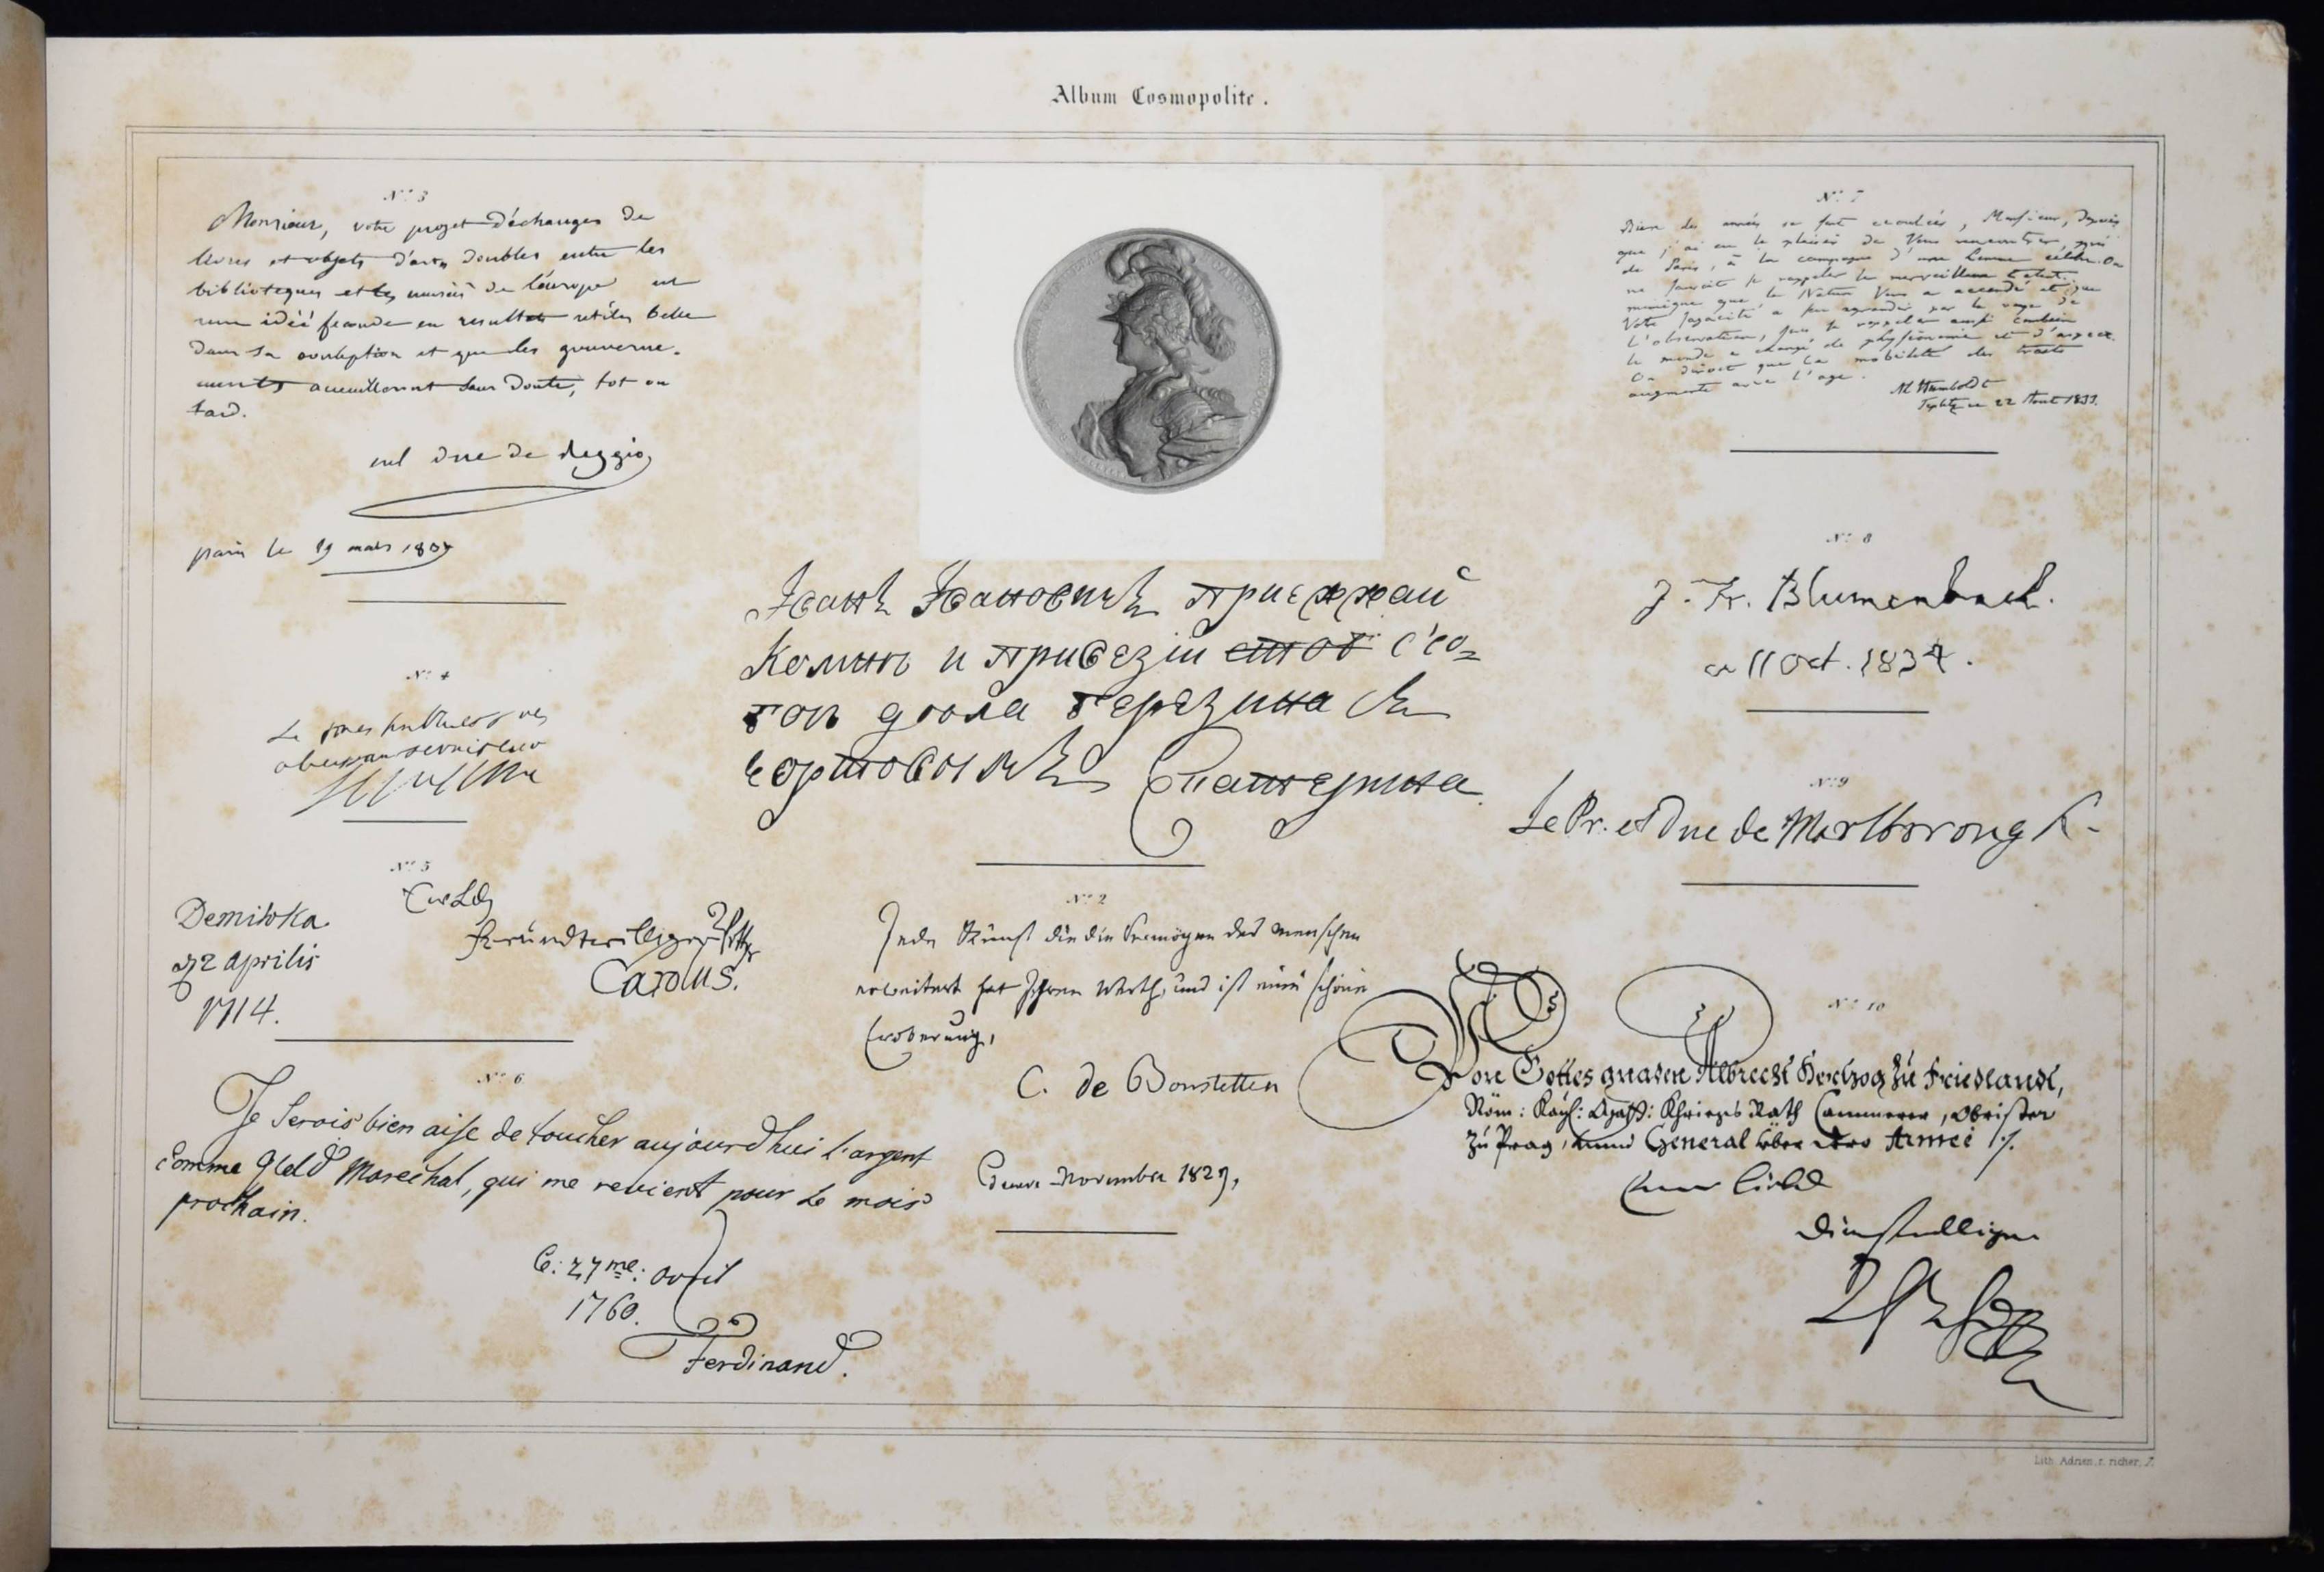 Album Cosmopolite.
Nº 3
Monsieur, votre projet d'échanges de
livres et objets d'arts doubles entre les
biblioteques et les musées de l'europe est
une idéé feconde en resultats utiles belle
dans sa conception et que les gouverne-
ments accueilleront sans doute, tot ou
tard.
mal duc de Reggio
paris le 19 mars 1837
Nº 4
Nº 5
Demiwka
1714.
Carolus.
Nº 6
Je serois bien aise de toucher aujourdhui l'argent
comme Gleld Marechal, qui me revient pour le mois
prochain.
C: 27me: avril
1760.
Ferdinand.
Іванъ Івановичъ приежжай
и привези
Екатерина
Nº 2
Jede Kunst die die Vermögen des Menschen
erweitert hat Ihren Werth, und ist eine schöne
Eroberung,
C. de Bonstetten
Novembre 1829,
Nº 7
Bien des années se sont ecoulées, Monsieur, depuis
que j'ai eu le plaisir de Vous rencontrer, près
de Paris, à la campagne d'une femme célèbre. On
ne sauroit se rappeler le merveilleux talent
mimique que la Nature Vous a accordé et que
Votre sagacité a su agrandir par
l'observation, sans se rappeler aussi combien
le monde a changé de physionomie et d'aspect.
On diroit que la mobilité des traits
augmente avec l'age.
Al Humboldt
Teplitz ce 22 Aout 1833.
Nº 8
J. Fr. Blumenbach.
11 Oct. 1834.
Nº 9
Le Pr. et Duc de Marlborough.
Nº 10
Von Gottes gnaden Albrecht Hertzog zu Friedlandt,
Röm: Kays: Kriegs Rath Cammerer, Obrister
zu Prag, unnd General über dero Armee
dienstwilliger
Lith. Adrien, r. richer, 7.